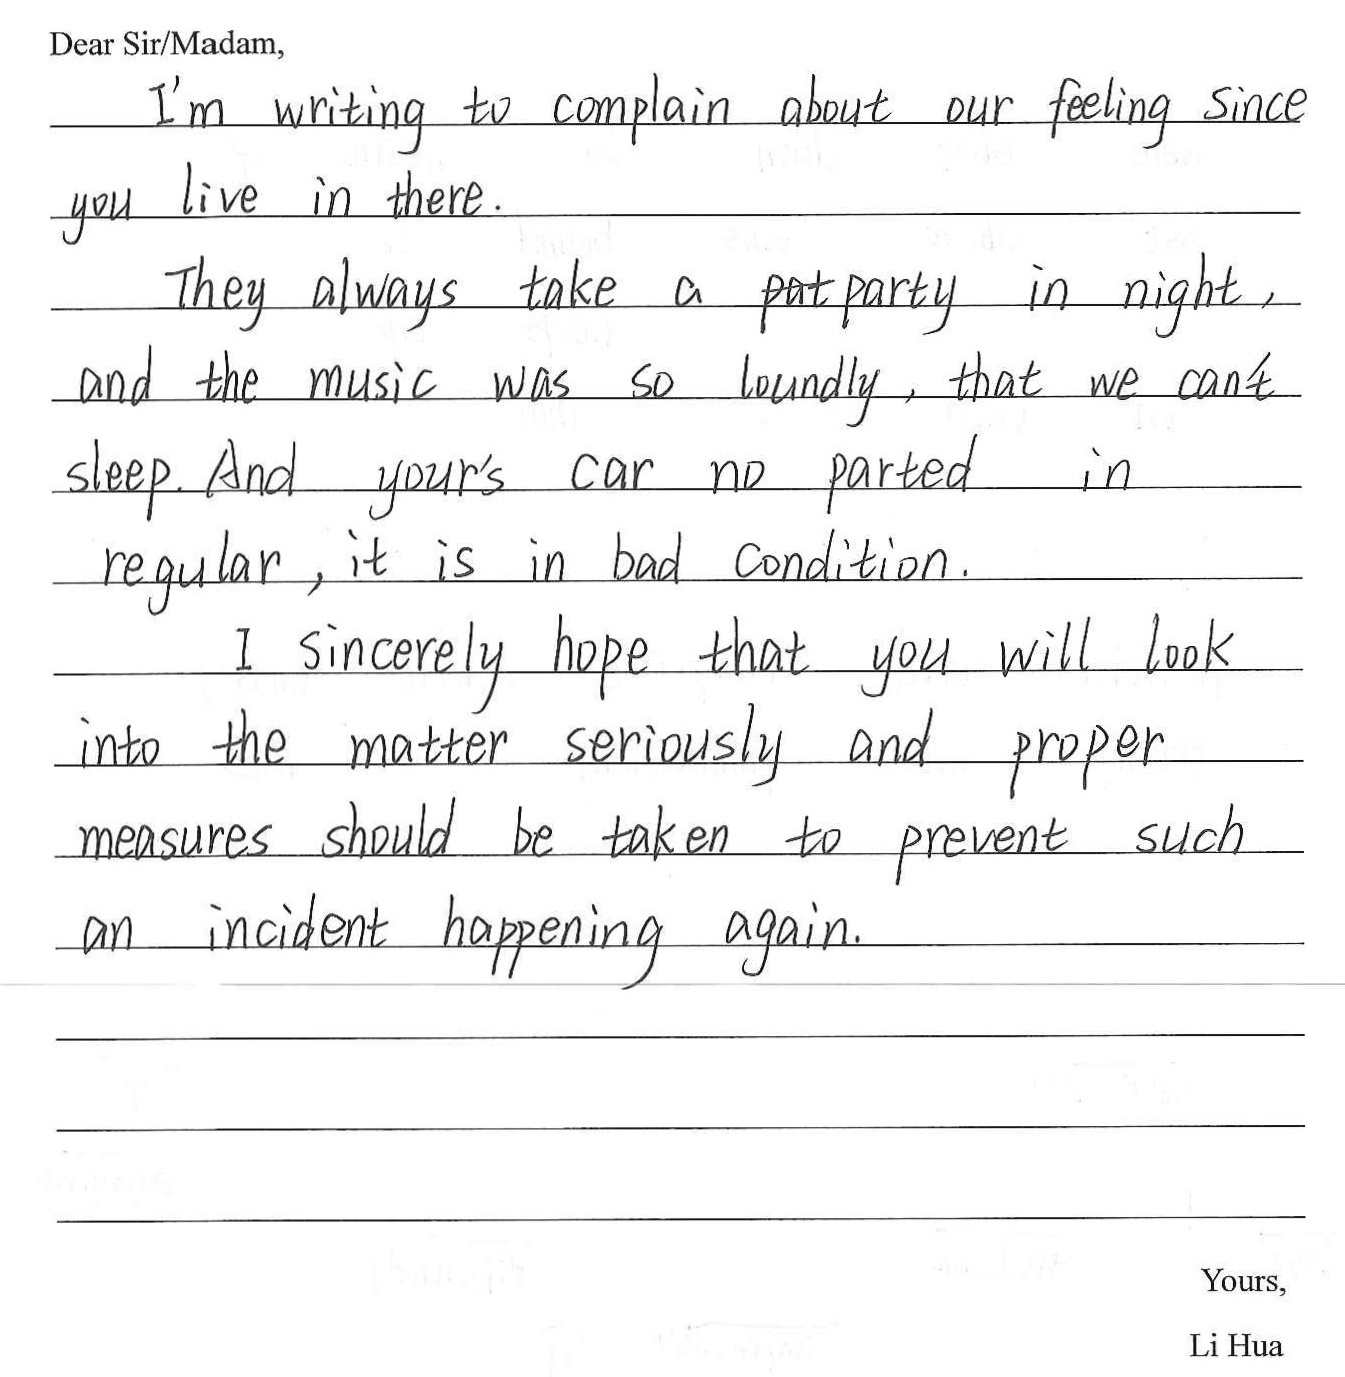 Dear Sir/Madam,
I'm writing to complain about our feeling since
you live in there.
They always take a pat party in night,
and the music was so loundly, that we can't
sleep. And your's car no parted in
regular, it is in bad condition.
I sincerely hope that you will look
into the matter seriously and proper
measures should be taken to prevent such
an incident happening again.
Yours,
Li Hua